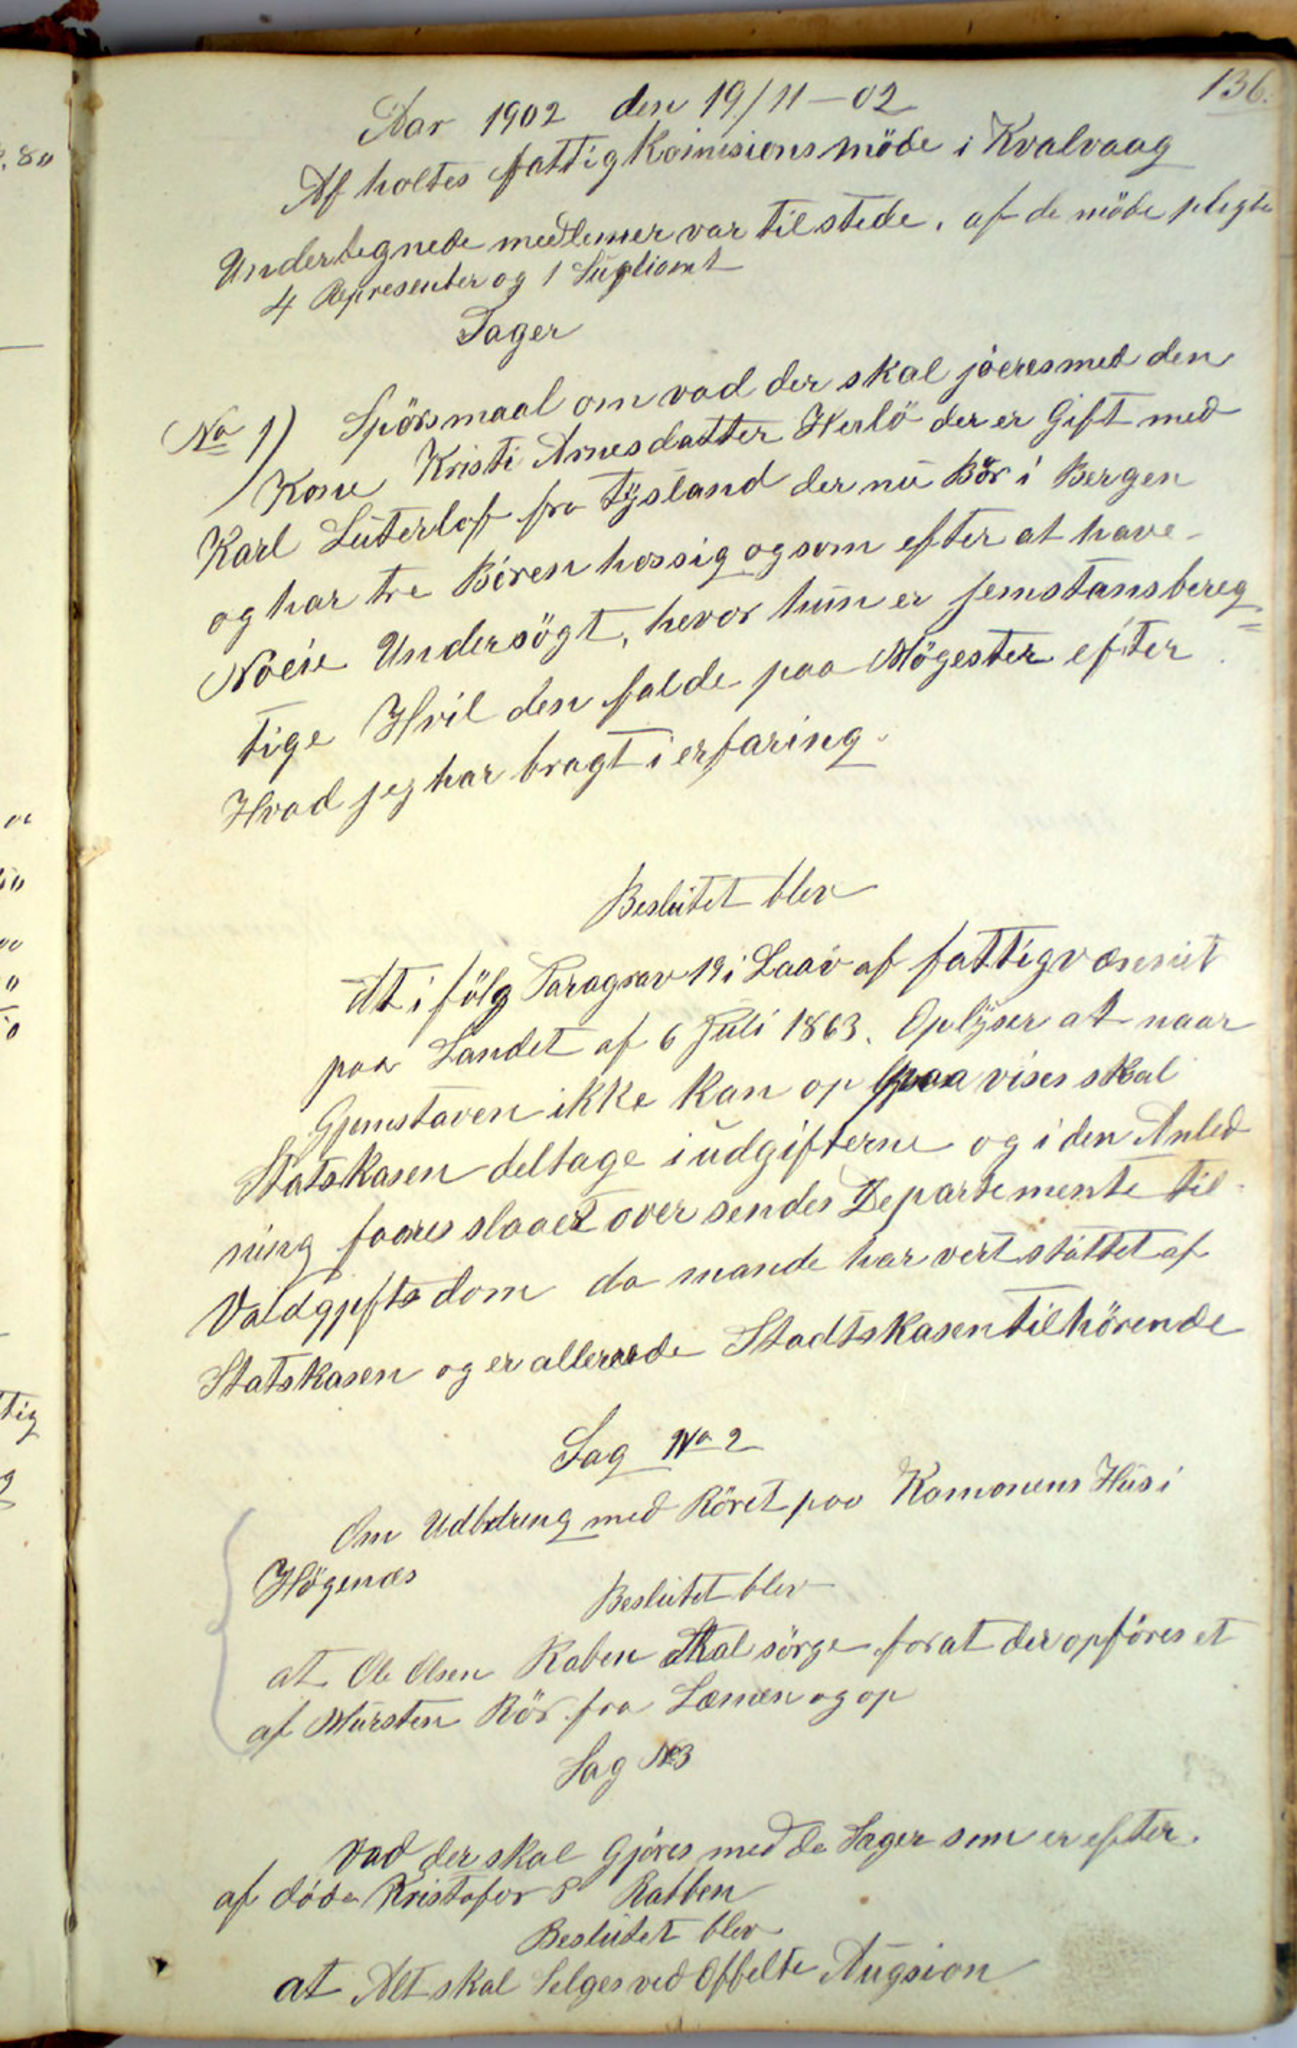 136.
Aar 1902 den 19/11-02
Af holtes fattigKomisionsmöde i Kvalvaag
Undertegnede medlemer var tilstede. af de möde plegte
4 Represente og 1 Supliant
Sager
No 1) Spörsmaal om vad der skal jöeres med den
Kone Kristi Arnesdatter Herlö der er Gift med
Karl Luterlof fra Tysland der nu Bör i Bergen
og har tre Bören hos sig og som efter at have
Nöeie Undersögt, hevor hun er jemstansbereg
tige Hvil den falde paa Mögester efter
Hvad jeg har bragt i erfaring.
Beslutet blev
At i fölg Paragrav 19 i Laav af fattigvæsnit
paa Landet af 6 Juli 1863. Oplyser at naar
Gjemstaven ikke kan op paavises skal
Statskasen deltage i udgifterne og i den Anled
ning faares slaaet over sendes Departemente til
Valdgjftsdom da mande har vert stöttet af
Statskasen og er allerede Stadtskasen tilhörende
Sag No 2
Om Udbdring med Röret paa Komonens Hus i
Högenæs
Beslutet blev
at Ole Olsen Raben skal sörge for at der opföres et
af Mursten Rör fra Læmen og op
Sag No 3
Vad der skal Gjöres med de Sager som er efter
af döde Kristofor S Rabben
Beslutet blev
at Alt skal Selges ved Offelte Augsion